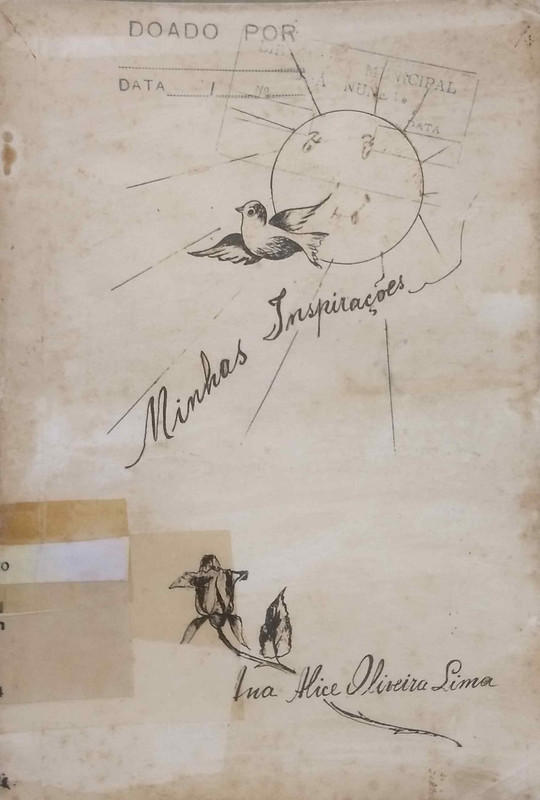 DOADO POR
MUNICIPAL
DATA / Nº
DATA
Minhas Inspirações
Ina Alice Oliveira Lima